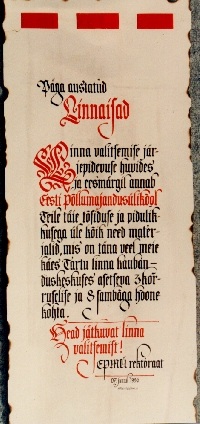 Väga austatud
Linnaisad
Linna valitsemise jär-
jepidevuse huvides
ja eesmärgil annab
Eesti Põllumajandusülikool
Teile täie tõsiduse ja pidulik-
kusega üle kõik need mater-
jalid, mis on täna veel meie
käes Tartu linna kauban-
duskeskuses asetseva 3kor-
ruselise ja 8 sambaga hoone
kohta.
Head jätkuvat linna
valitsemist!
EPMÜ rektoraat